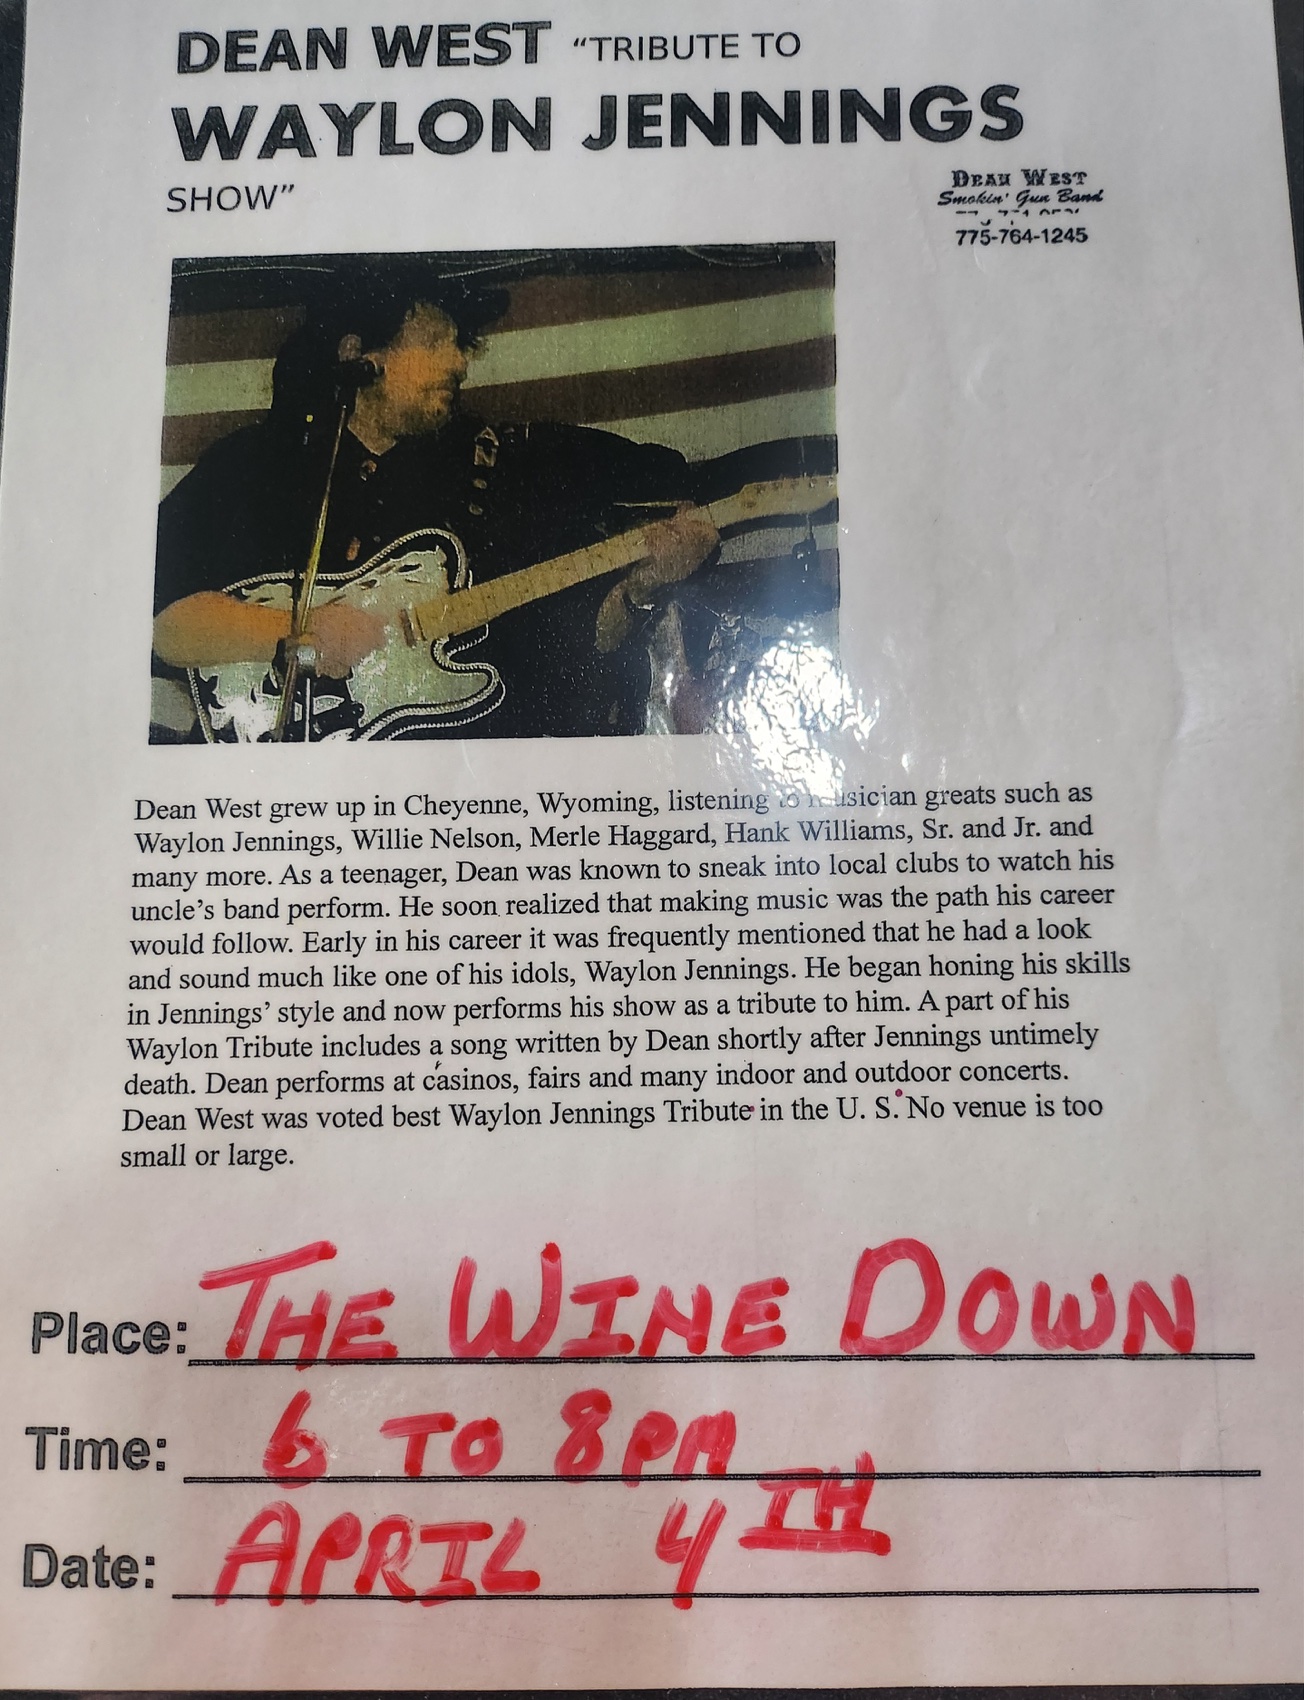 DEAN WEST "TRIBUTE TO
WAYLON JENNINGS
SHOW"
DEAN WEST
Smokin' Gun Band
775-764-1245
Dean West grew up in Cheyenne, Wyoming, listening to musician greats such as
Waylon Jennings, Willie Nelson, Merle Haggard, Hank Williams, Sr. and Jr. and
many more. As a teenager, Dean was known to sneak into local clubs to watch his
uncle's band perform. He soon realized that making music was the path his career
would follow. Early in his career it was frequently mentioned that he had a look
and sound much like one of his idols, Waylon Jennings. He began honing his skills
in Jennings' style and now performs his show as a tribute to him. A part of his
Waylon Tribute includes a song written by Dean shortly after Jennings untimely
death. Dean performs at casinos, fairs and many indoor and outdoor concerts.
Dean West was voted best Waylon Jennings Tribute in the U. S. No venue is too
small or large.
Place: THE WINE DOWN
Time: 6 TO 8PM
Date: APRIL 4TH